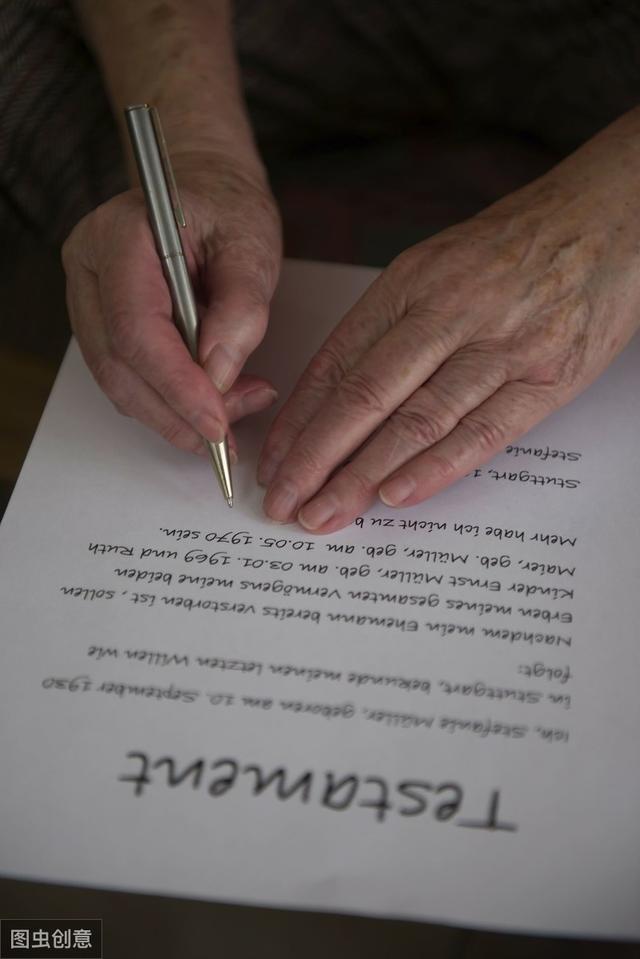 Testament
Ich, Stefanie Müller, geboren am 10. September 1930
in Stuttgart, bekunde meinen letzten Willen wie
folgt:
Nachdem mein Ehemann bereits verstorben ist, sollen
Erben meines gesamten Vermögens meine beiden
Kinder Ernst Müller, geb. am 03.01.1969 und Ruth
Maier, geb. Müller, geb. am 10.05.1970 sein.
Mehr habe ich nicht zu b
Stuttgart, 1
Stefanie
图虫创意